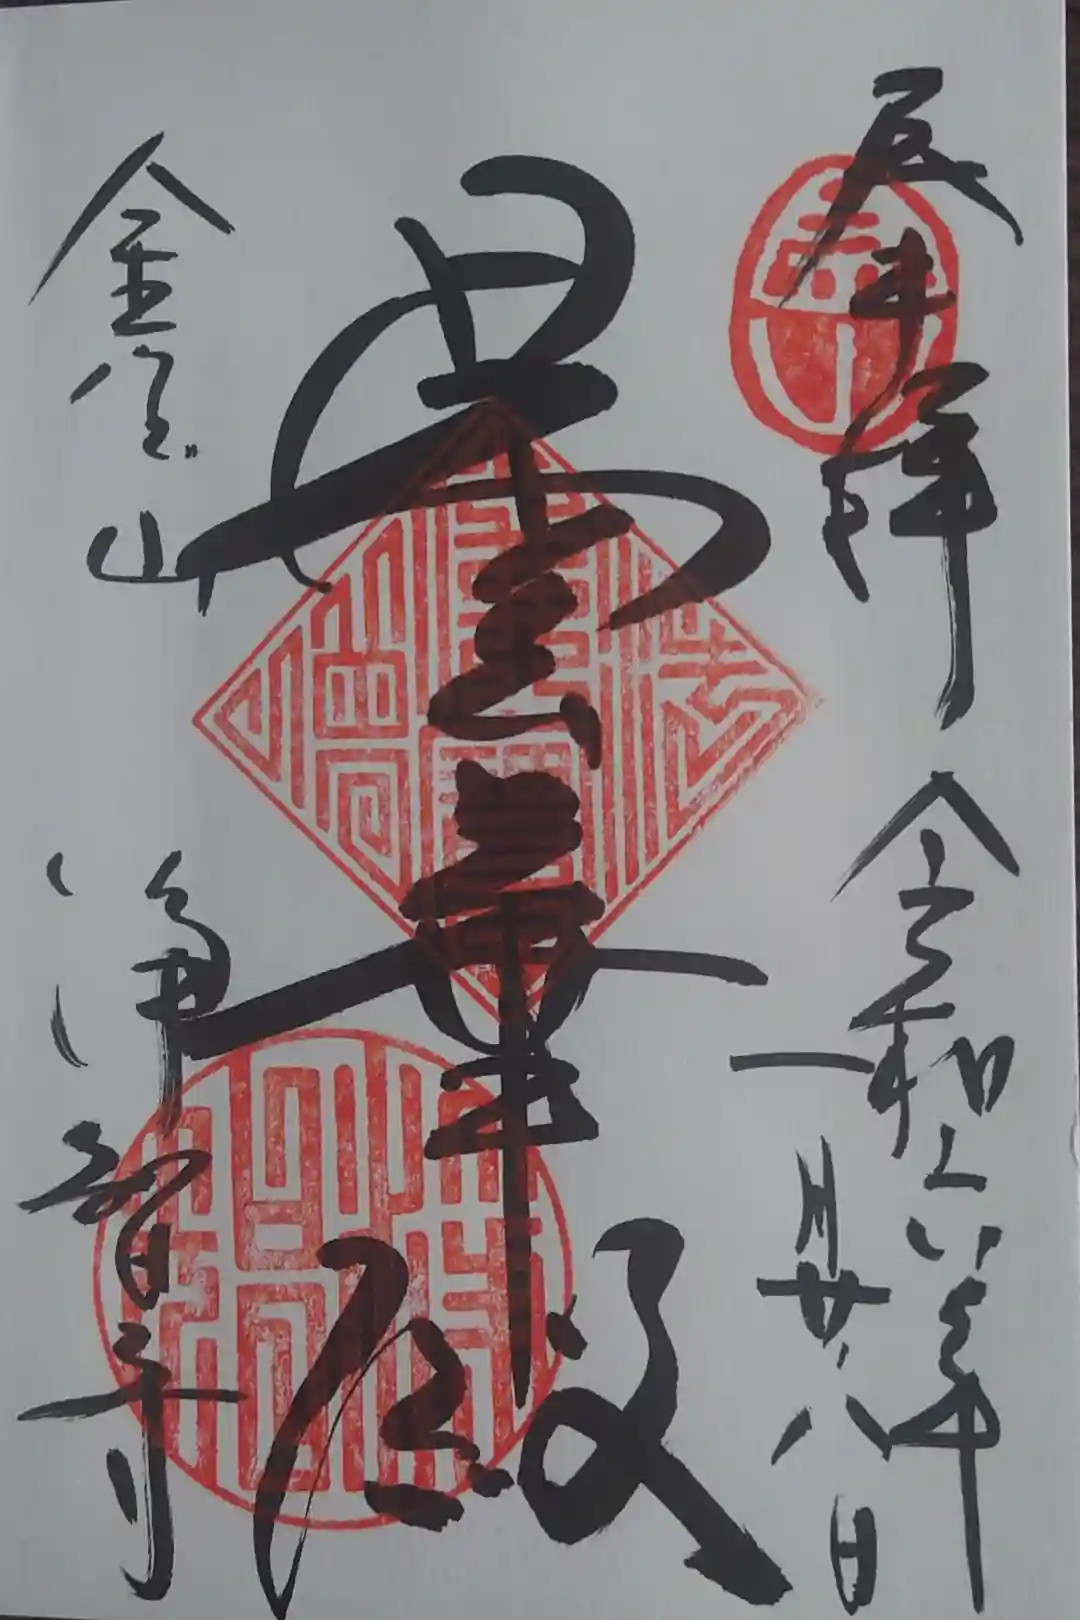 奉拝
令和六年
一月廿八日
曇華殿
金宝山
浄智寺